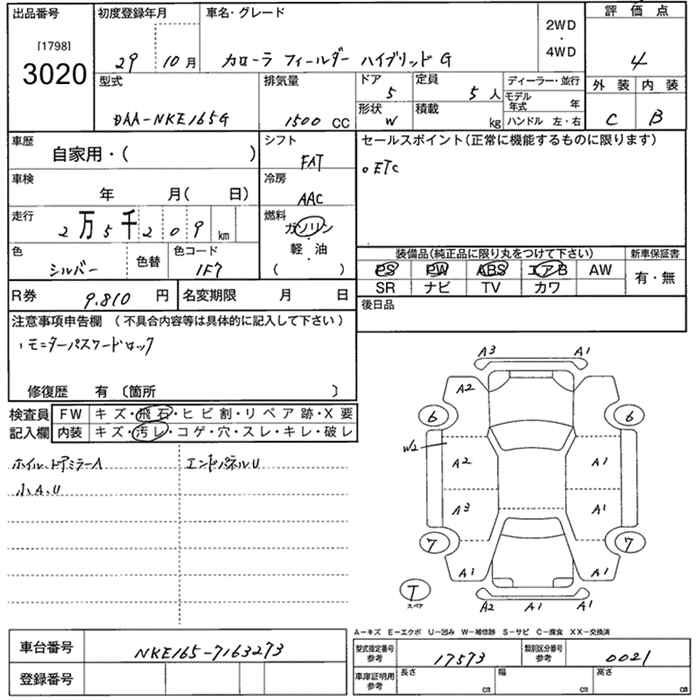 出品番号
[1798]
3020
初度登録年月
29 10月
車名・グレード
カローラ フィールダー ハイブリッド G
2WD
・
4WD
評価点
4
外装 内装
C B
型式
DAA-NKE165G
排気量
1500 CC
ドア
5
定員
5人
形状
W
積載
kg
ディーラー・並行
モデル年式 年
ハンドル 左・右
車歴
自家用・( )
シフト
FAT
セールスポイント(正常に機能するものに限ります)
○ETC
車検
年 月( 日)
冷房
AAC
走行
2万5千209 km
燃料
ガソリン
・
軽・油
・
( )
色
シルバー
色替
色コード
1F7
装備品(純正品に限り丸をつけて下さい)
新車保証書
PS PW ABS エアB AW
SR ナビ TV カワ
有・無
R券 9,810 円
名変期限 月 日
後日品
注意事項申告欄 (不具合内容等は具体的に記入して下さい)
・モニターパスワードロック
修復歴 有 〔箇所 〕
検査員
記入欄
FW キズ・飛石・ヒビ割・リペア跡・X要
内装 キズ・汚レ・コゲ・穴・スレ・キレ・破レ
ホイル、ドアミラーA
小A、U
エンドパネルU
A3 A1
A2
6 6
W2
A2 A1
A3 A1
7 7
A1 A1
T
スペア
A2 A1 A1
A-キズ E-エクボ U-凹み W-補修跡 S-サビ C-腐食 XX-交換済
車台番号 NKE165-7163273
登録番号
型式指定番号
参考
17573
類別区分番号
参考
0021
車庫証明用
参考
長さ cm
幅 cm
高さ cm